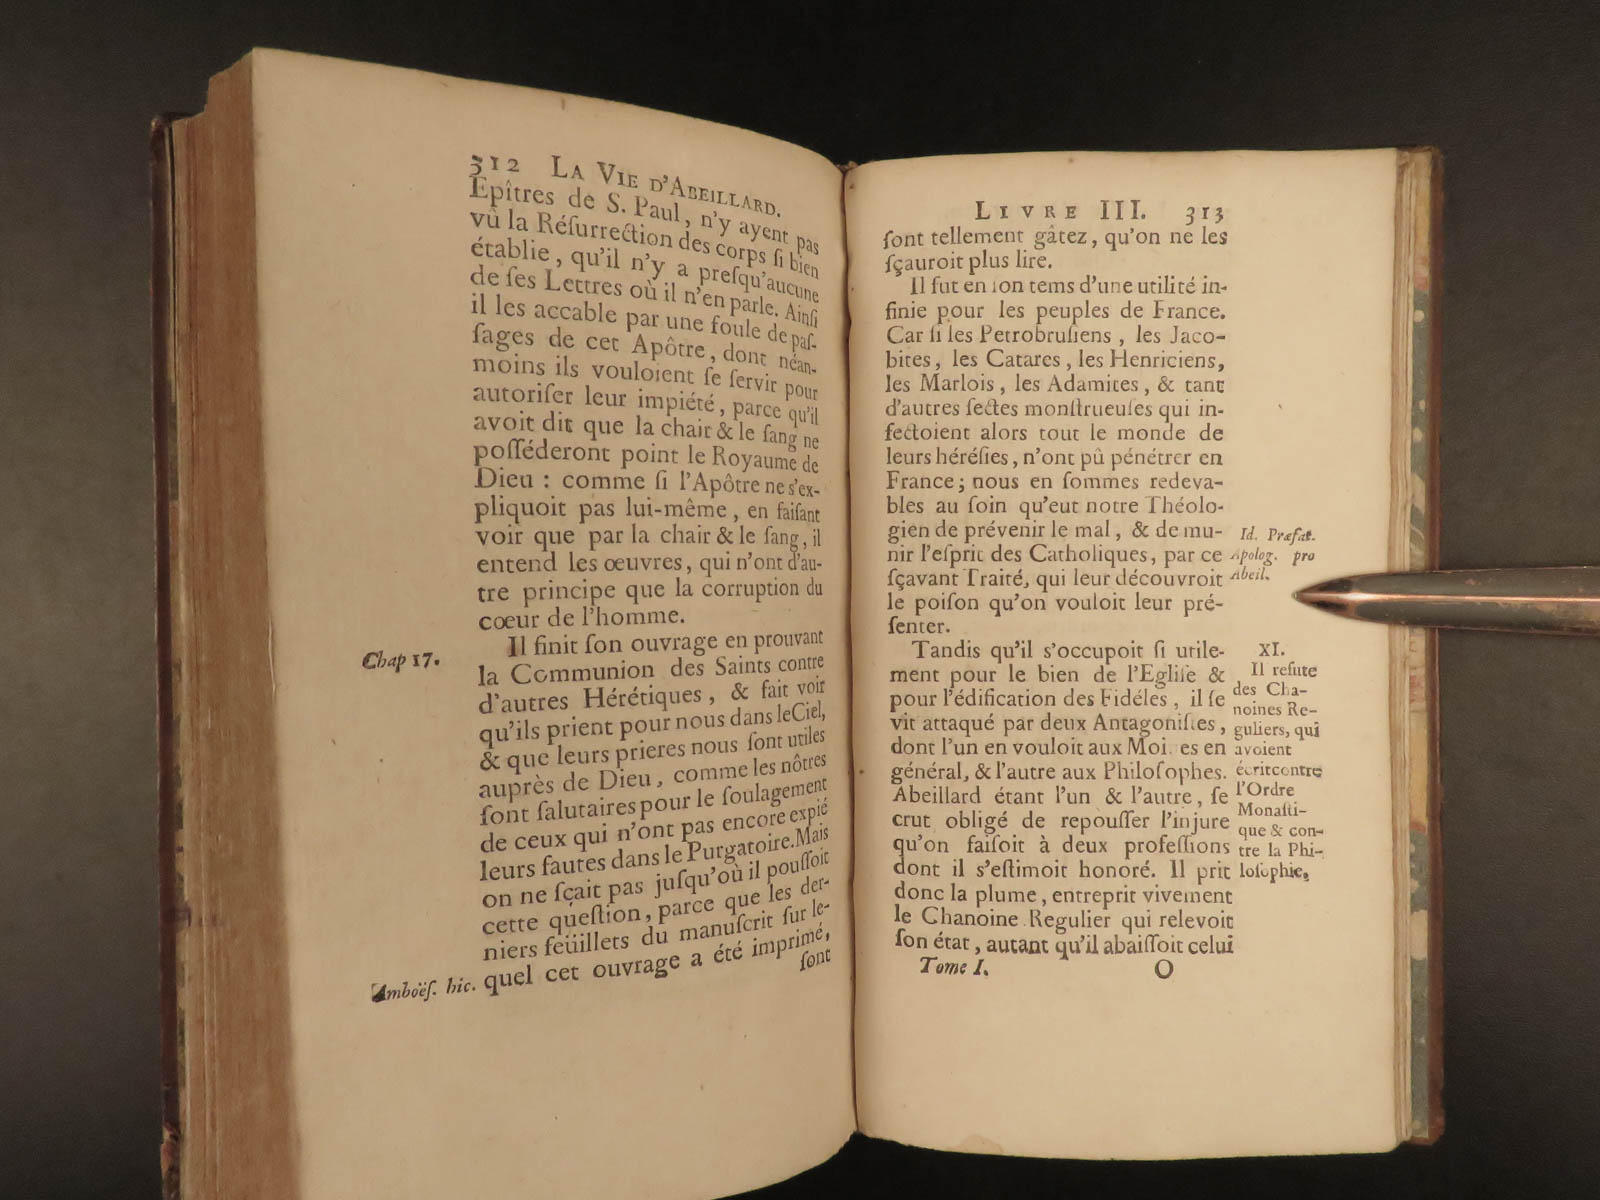 312 LA VIE D'ABEILLARD.
Epîtres de S. Paul, n'y ayent pas
vû la Réſurrection des corps ſi bien
établie, qu'il n'y a preſqu'aucune
de ſes Lettres où il n'en parle. Ainſi
il les accable par une foule de paſ-
ſages de cet Apôtre, dont néan-
moins ils vouloient ſe ſervir pour
autoriſer leur impiété, parce qu'il
avoit dit que la chair & le ſang ne
poſſéderont point le Royaume de
Dieu : comme ſi l'Apôtre ne s'ex-
pliquoit pas lui-même, en faiſant
voir que par la chair & le ſang, il
entend les œuvres, qui n'ont d'au-
tre principe que la corruption du
cœur de l'homme.
Chap 17.
Il finit ſon ouvrage en prouvant
la Communion des Saints contre
d'autres Hérétiques, & fait voir
qu'ils prient pour nous dans le Ciel,
& que leurs prieres nous ſont utiles
auprès de Dieu, comme les nôtres
ſont ſalutaires pour le ſoulagement
de ceux qui n'ont pas encore expié
leurs fautes dans le Purgatoire. Mais
on ne ſçait pas juſqu'où il pouſſoit
cette queſtion, parce que les der-
niers feüillets du manuſcrit ſur le-
Amboëſ. hic.
quel cet ouvrage a été imprimé,
ſont
LIVRE III. 313
ſont tellement gâtez, qu'on ne les
ſçauroit plus lire.
Il fut en ſon tems d'une utilité in-
finie pour les peuples de France.
Car ſi les Petrobruſiens, les Jaco-
bites, les Catares, les Henriciens,
les Marlois, les Adamites, & tant
d'autres ſectes monſtrueuſes qui in-
fectoient alors tout le monde de
leurs héréſies, n'ont pû pénétrer en
France; nous en ſommes redeva-
bles au ſoin qu'eut notre Théolo-
gien de prévenir le mal, & de mu-
nir l'eſprit des Catholiques, par ce
ſçavant Traité, qui leur découvroit
le poiſon qu'on vouloit leur pré-
ſenter.
Id. Præfat.
Apolog. pro
Abeil.
Tandis qu'il s'occupoit ſi utile-
ment pour le bien de l'Egliſe &
pour l'édification des Fidéles, il ſe
vit attaqué par deux Antagoniſtes,
dont l'un en vouloit aux Moi es en
général, & l'autre aux Philoſophes.
Abeillard étant l'un & l'autre, ſe
crut obligé de repouſſer l'injure
qu'on faiſoit à deux profeſſions
dont il s'eſtimoit honoré. Il prit
donc la plume, entreprit vivement
le Chanoine Regulier qui relevoit
ſon état, autant qu'il abaiſſoit celui
XI.
Il refute
des Cha-
noines Re-
guliers, qui
avoient
écrit contre
l'Ordre
Monaſti-
que & con-
tre la Phi-
loſophie.
Tome I. O